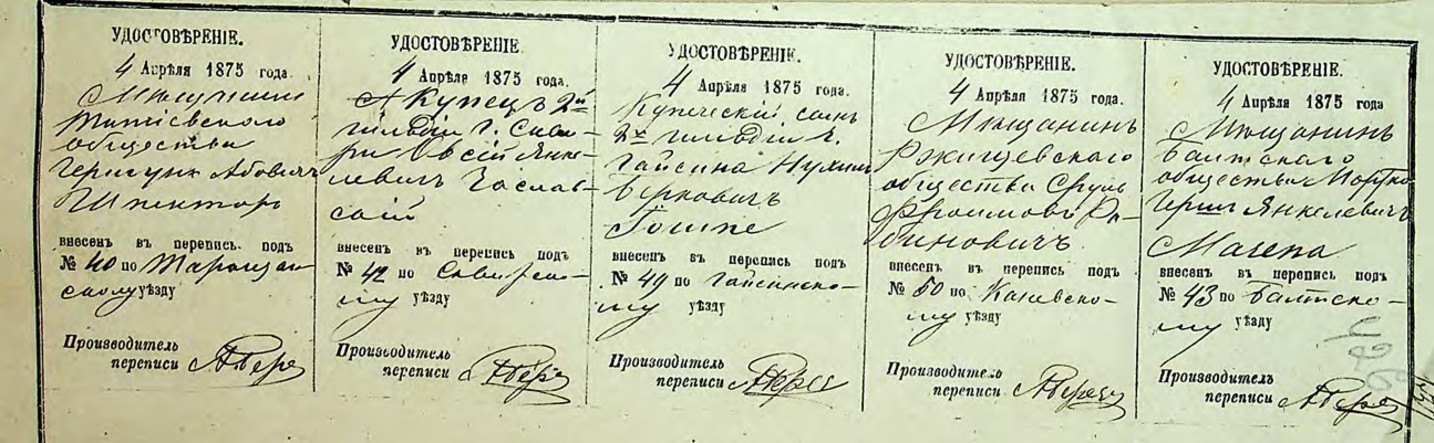 УДОСТОВѢРЕНІЕ.
4 Апрѣля 1875 года.
Мѣщанинъ
Тетіевскаго
общества
Гершунъ Абовичъ
Шпекторъ
внесенъ въ перепись подъ
№ 40 по Таращан-
скому уѣзду
Производитель
переписи
УДОСТОВѢРЕНІЕ
4 Апрѣля 1875 года.
Купецъ 2й
гильдіи г. Сква-
ры Овсій Янке-
левичъ Заслав-
скій
внесенъ въ перепись подъ
№ 42 по Сквирско-
му уѣзду
Производитель
переписи
УДОСТОВѢРЕНІЕ.
4 Апрѣля 1875 года.
Купеческій сынъ
2й гильдіи г.
Гайсина Нухим
Берковичъ
внесенъ въ перепись подъ
№ 49 по Гайсинско-
му уѣзду
Производитель
переписи
УДОСТОВѢРЕНІЕ.
4 Апрѣля 1875 года.
Мѣщанинъ
Ржищевскаго
общества Сруль
Фроимовъ Ра-
биновичъ
внесенъ въ перепись подъ
№ 50 по Каневско-
му уѣзду
Производитель
переписи
УДОСТОВѢРЕНІЕ.
4 Апрѣля 1875 года.
Мѣщанинъ
Балтскаго
общества Мортко
Герш Янкелевичъ
внесенъ въ перепись подъ
№ 43 по Балтско-
му уѣзду
Производитель
переписи